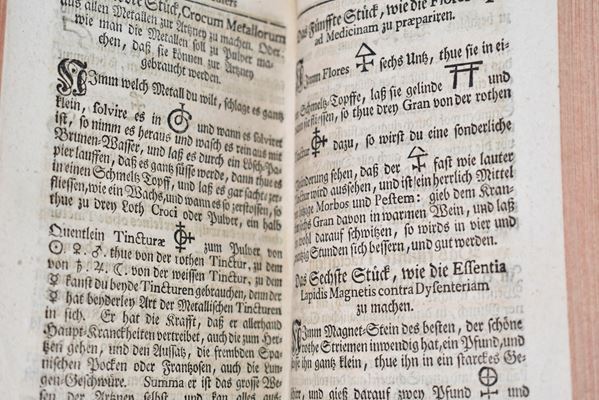 Stück, Crocum Metallorum
aus allen Metallen zur Artzney zu machen. Oder:
wie man die Metallen soll zu Pulver ma-
chen, daß sie können zur Artzney
gebraucht werden.
Nimm welch Metall du wilt, schlage es gantz
klein, solvire es in und wann es solviret
ist, so nimm es heraus und wasch es rein aus mit
Brunnen-Wasser, und laß es durch ein Lösch-Pa-
pier lauffen, daß es gantz süsse werde, dann thue es
in einen Schmeltz Topff, und laß es gar sachte zer-
fliessen, wie ein Wachs, und wann es so zerflossen, so
thue zu drey Loth Croci oder Pulver, ein halb
Quentlein Tincturæ zum Pulver von
☉. ♀. ♂. thue von der rothen Tinctur, zu dem
von ♄. ♃. ☾. von der weissen Tinctur, zu dem
☿ kanst du beyde Tincturen gebrauchen, denn der
☿ hat beyderley Art der Metallischen Tincturen
in sich. Er hat die Krafft, daß er allerhand
Haupt-Kranckheiten vertreibet, auch die zum Her-
tzen gehen, und den Aussatz, die frembden Spa-
nischen Pocken oder Frantzosen, auch die Lun-
gen-Geschwüre. Summa er ist das grosse We-
sen der Artzney selbst, und kan alles
Das Fünffte Stück, wie die Flores
ad Medicinam zu præpariren.
Nimm Flores 🜍 sechs Untz, thue sie in ei-
nen Schmeltz-Topffe, laß sie gelinde und
fliessen, so thue drey Gran von der rothen
Tinctur dazu, so wirst du eine sonderliche
Veränderung sehen, daß der 🜍 fast wie lauter
Tinctur wird aussehen, und ist ein herrlich Mittel
Morbos und Pestem: gieb dem Kran-
Gran davon in warmen Wein, und laß
wohl darauf schwitzen, so wirds in vier und
zwantzig Stunden sich bessern, und gut werden.
Das Sechste Stück, wie die Essentia
Lapidis Magnetis contra Dysenteriam
zu machen.
Nimm Magnet-Stein des besten, der schöne
rothe Striemen inwendig hat, ein Pfund, und
ihn gantz klein, thue ihn in ein starckes Ge-
und gieß darauf zwey Pfund und